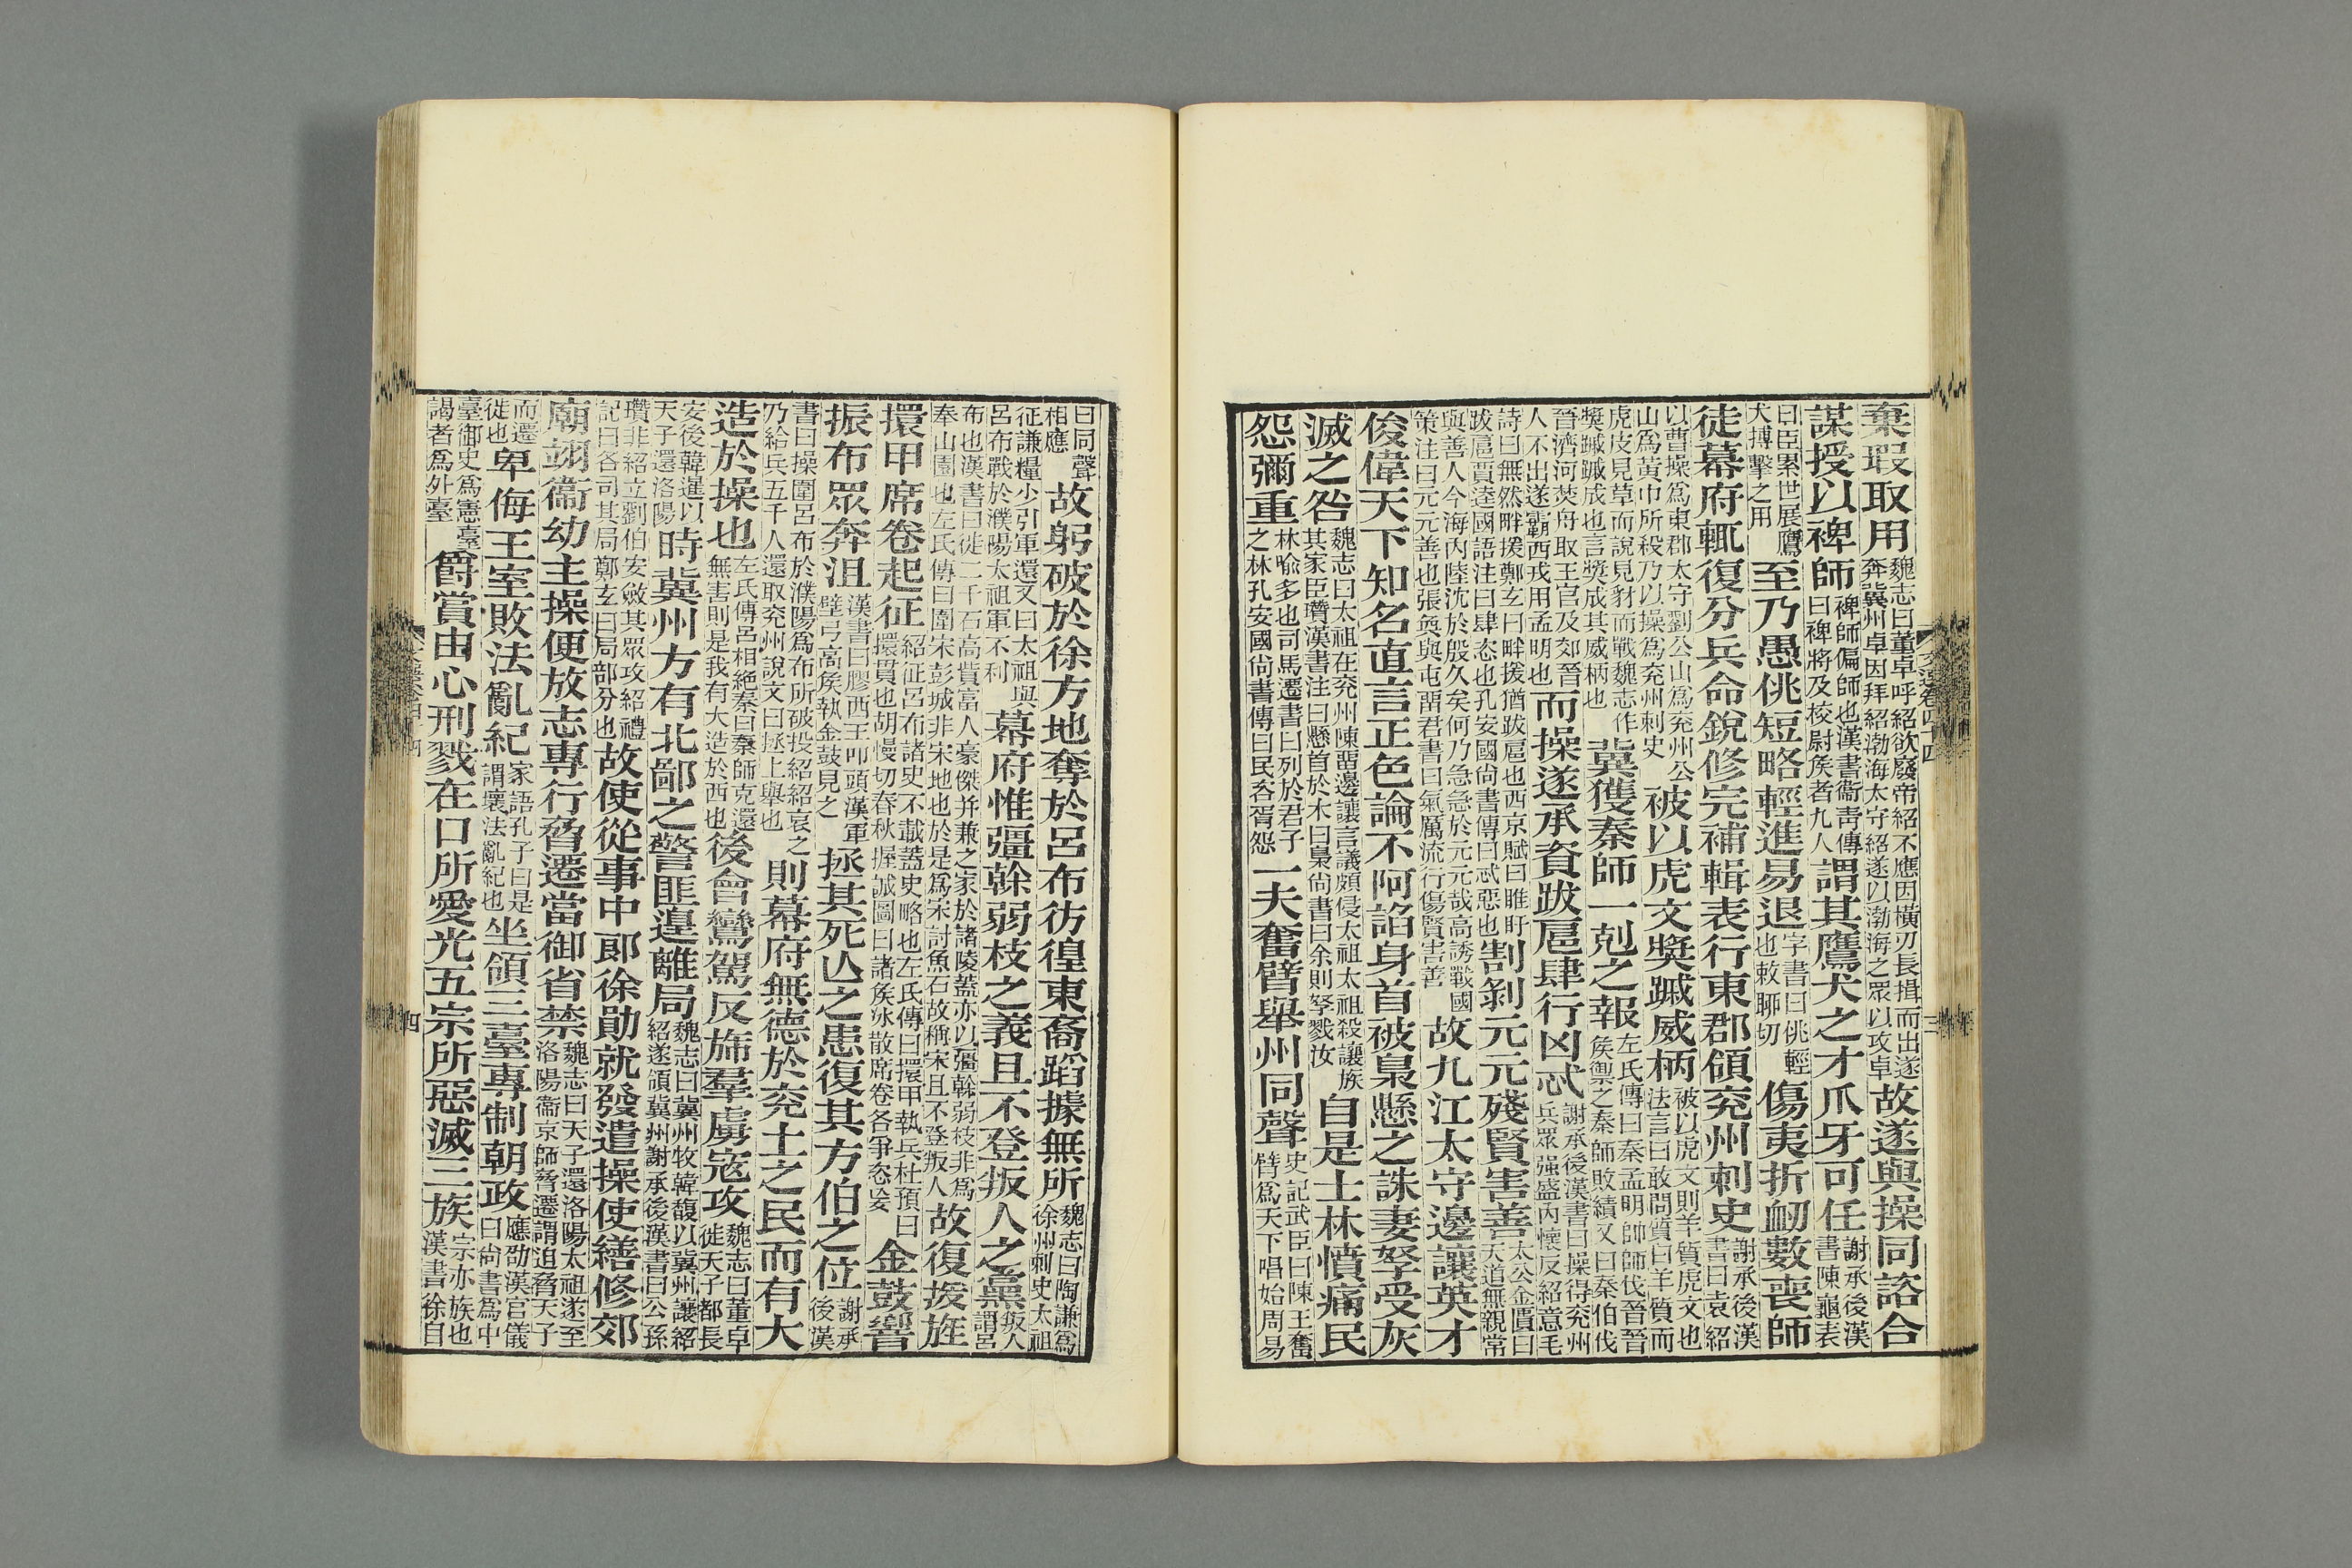 棄瑕取用魏志曰董卓呼紹欲廢帝紹不應因橫刃長揖而出遂奔冀州卓因拜紹渤海太守紹遂以渤海之眾以攻卓故遂與操同諮合
謀授以裨師裨師偏師也漢書衞青傳曰裨將及校尉矦者九人謂其鷹犬之才爪牙可任謝承後漢書陳龜表
曰臣累世展鷹犬搏擊之用至乃愚佻短略輕進易退字書曰佻輕也敕聊切傷夷折衂數喪師
徒幕府輒復分兵命銳修完補輯表行東郡領兖州刺史謝承後漢書曰袁紹
以曹操爲東郡太守劉公山爲兖州公山爲黃巾所殺乃以操爲兖州刺史被以虎文奬蹴威柄被以虎文則羊質虎文也法言曰敢問質曰羊質而
虎皮見草而說見豺而戰魏志作奬蹴蹴成也言奬成其威柄也冀獲秦師一剋之報左氏傳曰秦孟明帥師伐晉晉矦禦之秦師敗績又曰秦伯伐
晉濟河焚舟取王官及郊晉人不出遂霸西戎用孟明也而操遂承資跋扈肆行凶忒謝承後漢書曰操得兖州兵眾强盛內懷反紹意毛
詩曰無然畔援鄭玄曰畔援猶跋扈也西京賦曰睢盱跋扈賈逵國語注曰肆恣也孔安國尚書傳曰忒惡也割剝元元殘賢害善太公金匱曰天道無親常
與善人今海內陸沈於殷久矣何乃急急於元元哉高誘戰國策注曰元元善也張奐與屯畱君書曰氣厲流行傷賢害善故九江太守邊讓英才
俊偉天下知名直言正色論不阿諂身首被梟懸之誅妻孥受灰
滅之咎魏志曰太祖在兖州陳畱邊讓言議頗侵太祖太祖殺讓族其家臣瓚漢書注曰懸首於木曰梟尚書曰余則孥戮汝自是士林憤痛民
怨彌重林喻多也司馬遷書曰列於君子之林孔安國尚書傳曰民咨胥怨一夫奮臂舉州同聲史記武臣曰陳王奮臂爲天下唱始周易
文選卷四十四
三
曰同聲相應故躬破於徐方地奪於呂布彷徨東裔蹈據無所魏志曰陶謙爲徐州刺史太祖
征謙糧少引軍還又曰太祖與呂布戰於濮陽太祖軍不利幕府惟彊幹弱枝之義且不登叛人之黨叛人謂呂
布也漢書曰徙二千石高貲富人豪傑并兼之家於諸陵蓋亦以彊幹弱枝非爲奉山園也左氏傳曰圍宋彭城非宋地也於是爲宋討魚石故稱宋且不登叛人故復援旌
擐甲席卷起征紹征呂布諸史不載蓋史略也左氏傳曰擐甲執兵杜預曰擐貫也胡慢切春秋握誠圖曰諸矦冰散席卷各爭恣妄金鼓響
振布眾奔沮漢書曰膠西王叩頭漢軍壁弓高矦執金鼓見之拯其死亾之患復其方伯之位謝承後漢
書曰操圍呂布於濮陽爲布所破投紹紹哀之乃給兵五千人還取兖州說文曰拯上舉也則幕府無德於兖土之民而有大
造於操也左氏傳呂相絕秦曰秦師克還無害則是我有大造於西也後會鸞駕反斾羣虜寇攻魏志曰董卓徙天子都長
安後韓暹以天子還洛陽時冀州方有北鄙之警匪遑離局魏志曰冀州牧韓馥以冀州讓紹紹遂領冀州謝承後漢書曰公孫
瓚非紹立劉伯安斂其眾攻紹禮記曰各司其局鄭玄曰局部分也故使從事中郎徐勛就發遣操使繕修郊
廟翊衞幼主操便放志專行脅遷當御省禁魏志曰天子還洛陽太祖遂至洛陽衞京師脅遷謂迫脅天子
而遷徙也卑侮王室敗法亂紀家語孔子曰是謂壞法亂紀也坐領三臺專制朝政應劭漢官儀曰尚書爲中
臺御史爲憲臺謁者爲外臺爵賞由心刑戮在口所愛光五宗所惡滅三族宗亦族也漢書徐自
四